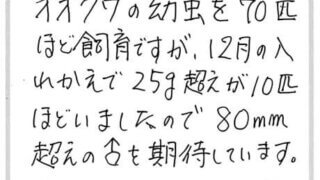 オオクワの幼虫を70匹
ほど飼育ですが、12月の入
れかえで25g超えが10匹
ほどいましたので80mm
超えの♂を期待しています。